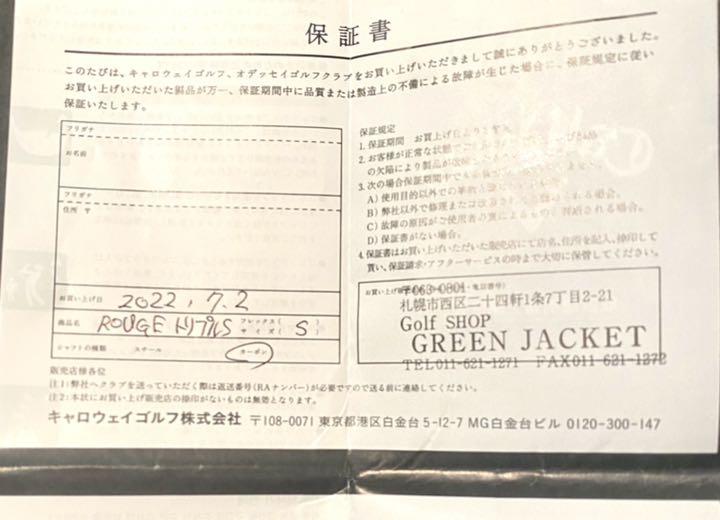 保証書
このたびは、キャロウェイゴルフ、オデッセイゴルフクラブをお買い上げいただきまして誠にありがとうございました。
お買い上げいただいた製品が万一、保証期間中に品質または製造上の不備による故障が生じた場合に、保証規定に従い
保証いたします。
フリガナ
お名前
フリガナ
住所 〒
お買い上げ日 2022.7.2
商品名 ROUGE トリプルS フレックス サイズ ( S )
シャフトの種類 スチール カーボン
保証規定
1. 保証期間 お買上げ日より
2. お客様が正常な状態で
の欠陥により製品が
3. 次の場合保証期間中でも
A) 使用目的以外での
B) 弊社以外で修理または
C) 故障の原因がご使用者の
D) 保証書がない場合。
4. 保証書はお買い上げいただいた販売店にて店名、住所を記入、捺印して
貰い、保証請求・アフターサービスの時まで大切に保管してください。
〒063-0801
札幌市西区二十四軒1条7丁目2-21
Golf SHOP
GREEN JACKET
TEL011-621-1271 FAX011-621-1272
販売店様各位
注1: 弊社へクラブを送っていただく際は返送番号(RAナンバー)が必要ですので送る前に連絡してください。
注2: 本状にお買い上げ販売店の捺印がないものは無効となります。
キャロウェイゴルフ株式会社 〒108-0071 東京都港区白金台5-12-7 MG白金台ビル 0120-300-147